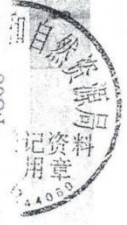 和自然资源局
记资料
用章
44060